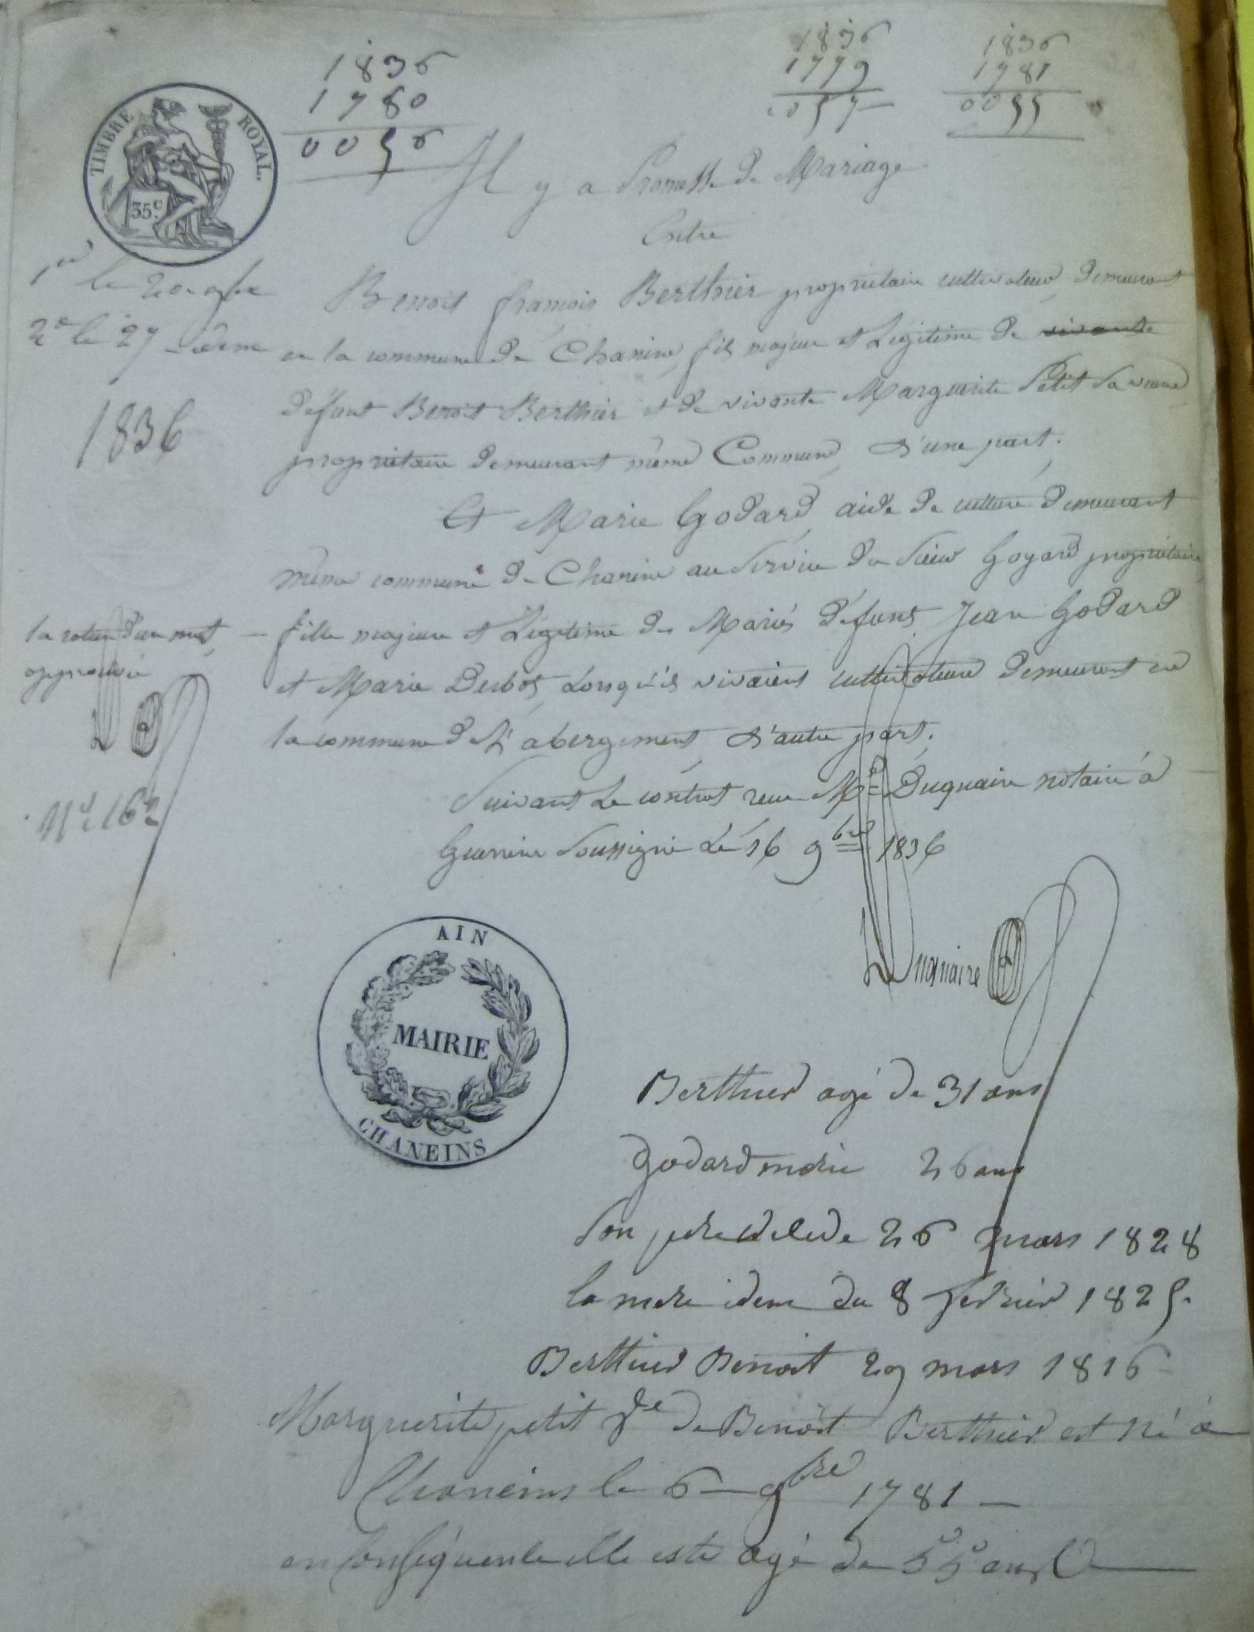 1836
1780
0056
1836
1779
0057
1836
1781
0055
TIMBRE ROYAL.
35 c
Il y a Promesse de Mariage
Entre
1er le 20 9bre
2e le 27 idem
1836
Benoit françois Berthier propriétaire cultivateur demeurant
en la commune de Chanins fils majeur et Légitime de vivante
défunt Benoit Berthier et de vivante Marguerite Petit sa veuve
propriétaire demeurant même Commune, d'une part.
Et Marie Godard aide de culture demeurant
même commune de Chanins au Service du Sieur Goyard propriétaire
fille majeure et Légitime de Mariés défunts Jean Godard
et Marie Dubost, Lorsqu'ils vivaient cultivateurs demeurant en
la commune de L'abergement d'autre part.
la rature d'un mot
approuvée
Suivant Le contrat reçu Me Duquaire notaire à
Guerrins Soussigné Le 16 9bre 1836
Duquaire
AIN
MAIRIE
CHANEINS
Berthier agé de 31 ans
Godard marie 26 ans
Son pere décédé 26 mars 1828
la mere idem du 8 fevrier 1825.
Berthier Benoit 29 mars 1816
Marguerite petit Ve de Benoit Berthier est né à
Chaneins le 6 9bre 1781
en conséquence elle est agé de 55 ans